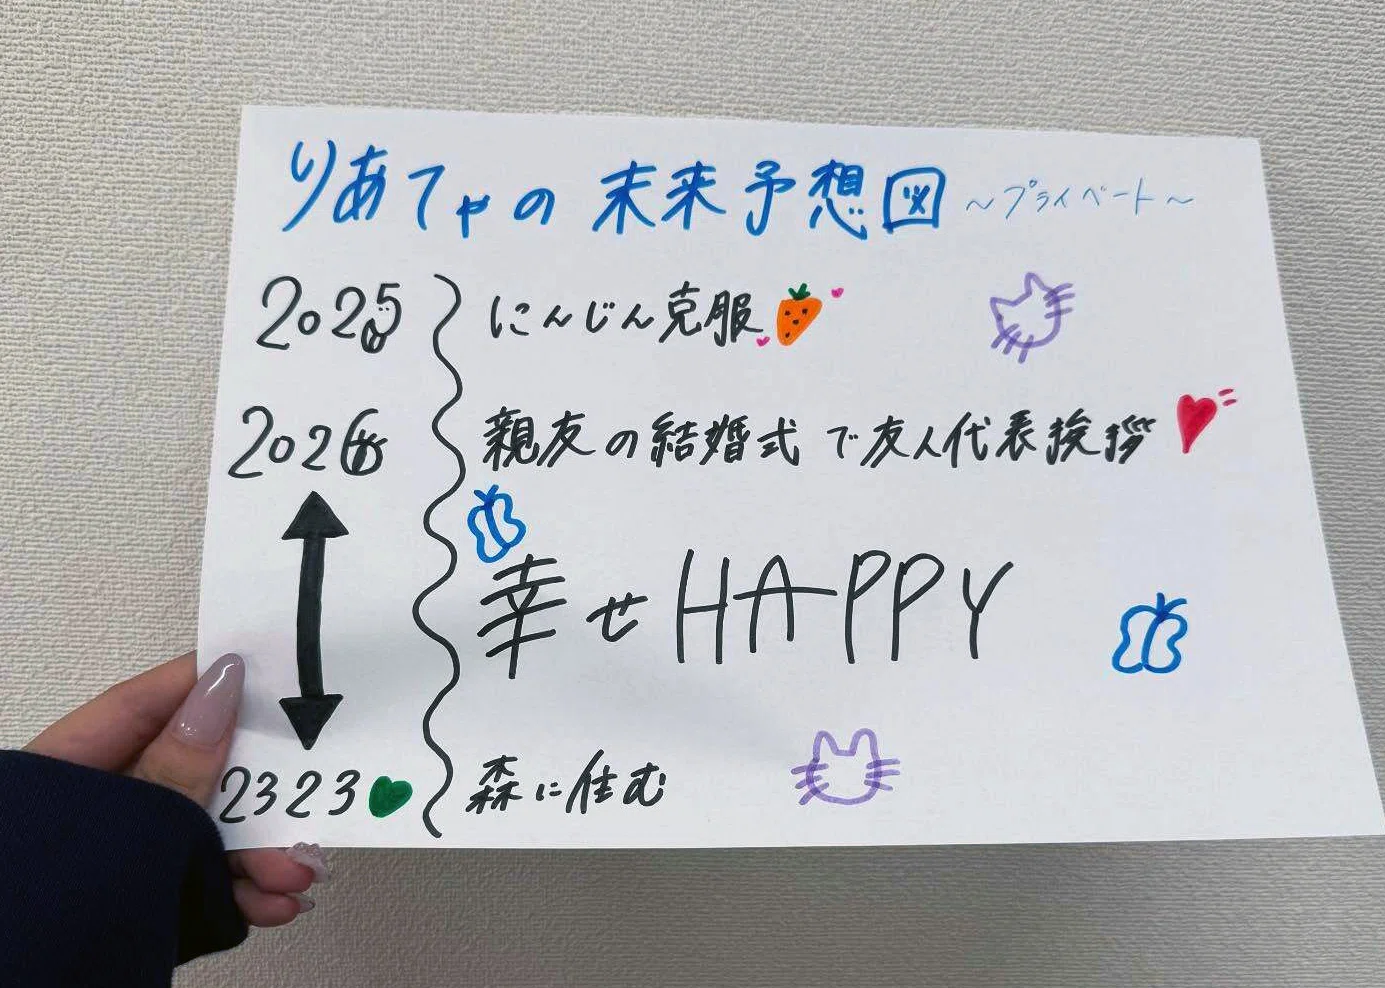 りあてゃの未来予想図 ～プライベート～
2025 にんじん克服
2026 親友の結婚式で友人代表挨拶
幸せHAPPY
2323 森に住む